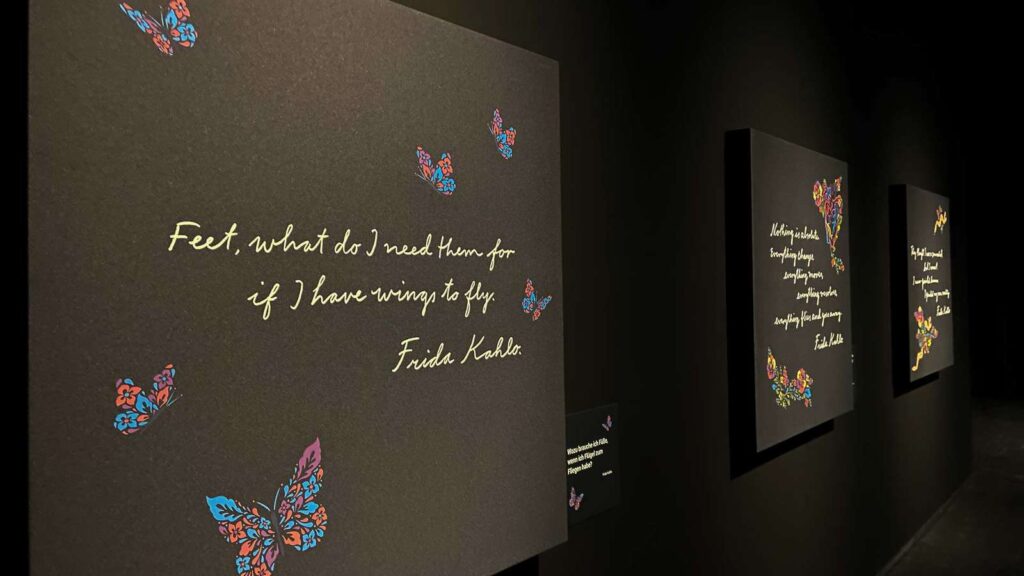 Feet, what do I need them for
if I have wings to fly.
Frida Kahlo.
Wozu brauche ich Füße,
wenn ich Flügel zum
Fliegen habe?
Nothing is absolute.
Everything changes,
everything moves,
everything revolves,
everything flies and goes away.
Frida Kahlo
Frida Kahlo